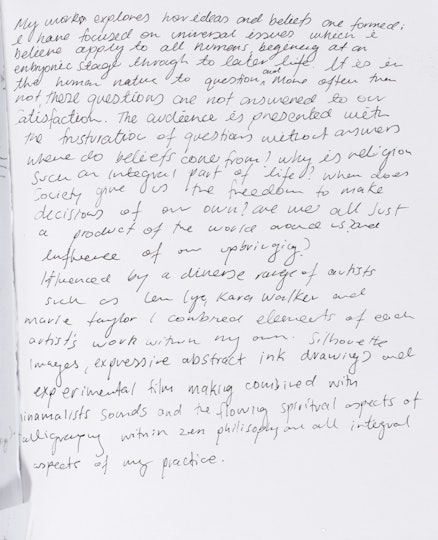 My work explores how ideas and beliefs are formed;
I have focused on universal issues which I
believe apply to all humans, begening at an
embryonic stage through to later life. It is in
the human nature to question, and more often than
not these questions are not answered to our
atisfaction. The audience is presented with
the frusturation of questions without answers
where do beliefs come from? why is religion
such an integral part of life? when does
society give us the freedom to make
decisions of our own? are we all just
a product of the world around us? and
influence of our upbringing?
Influenced by a diverse range of artists
such as Len Lye, Kara Walker and
marie taylor I combined elements of each
artist's work within my own. Silhouette
images, expressive abstract ink drawings and
experimental film making combined with
inamalists sounds and the flowing spiritual aspects of
alligraphy within zen philosophy are all integral
aspects of my practice.